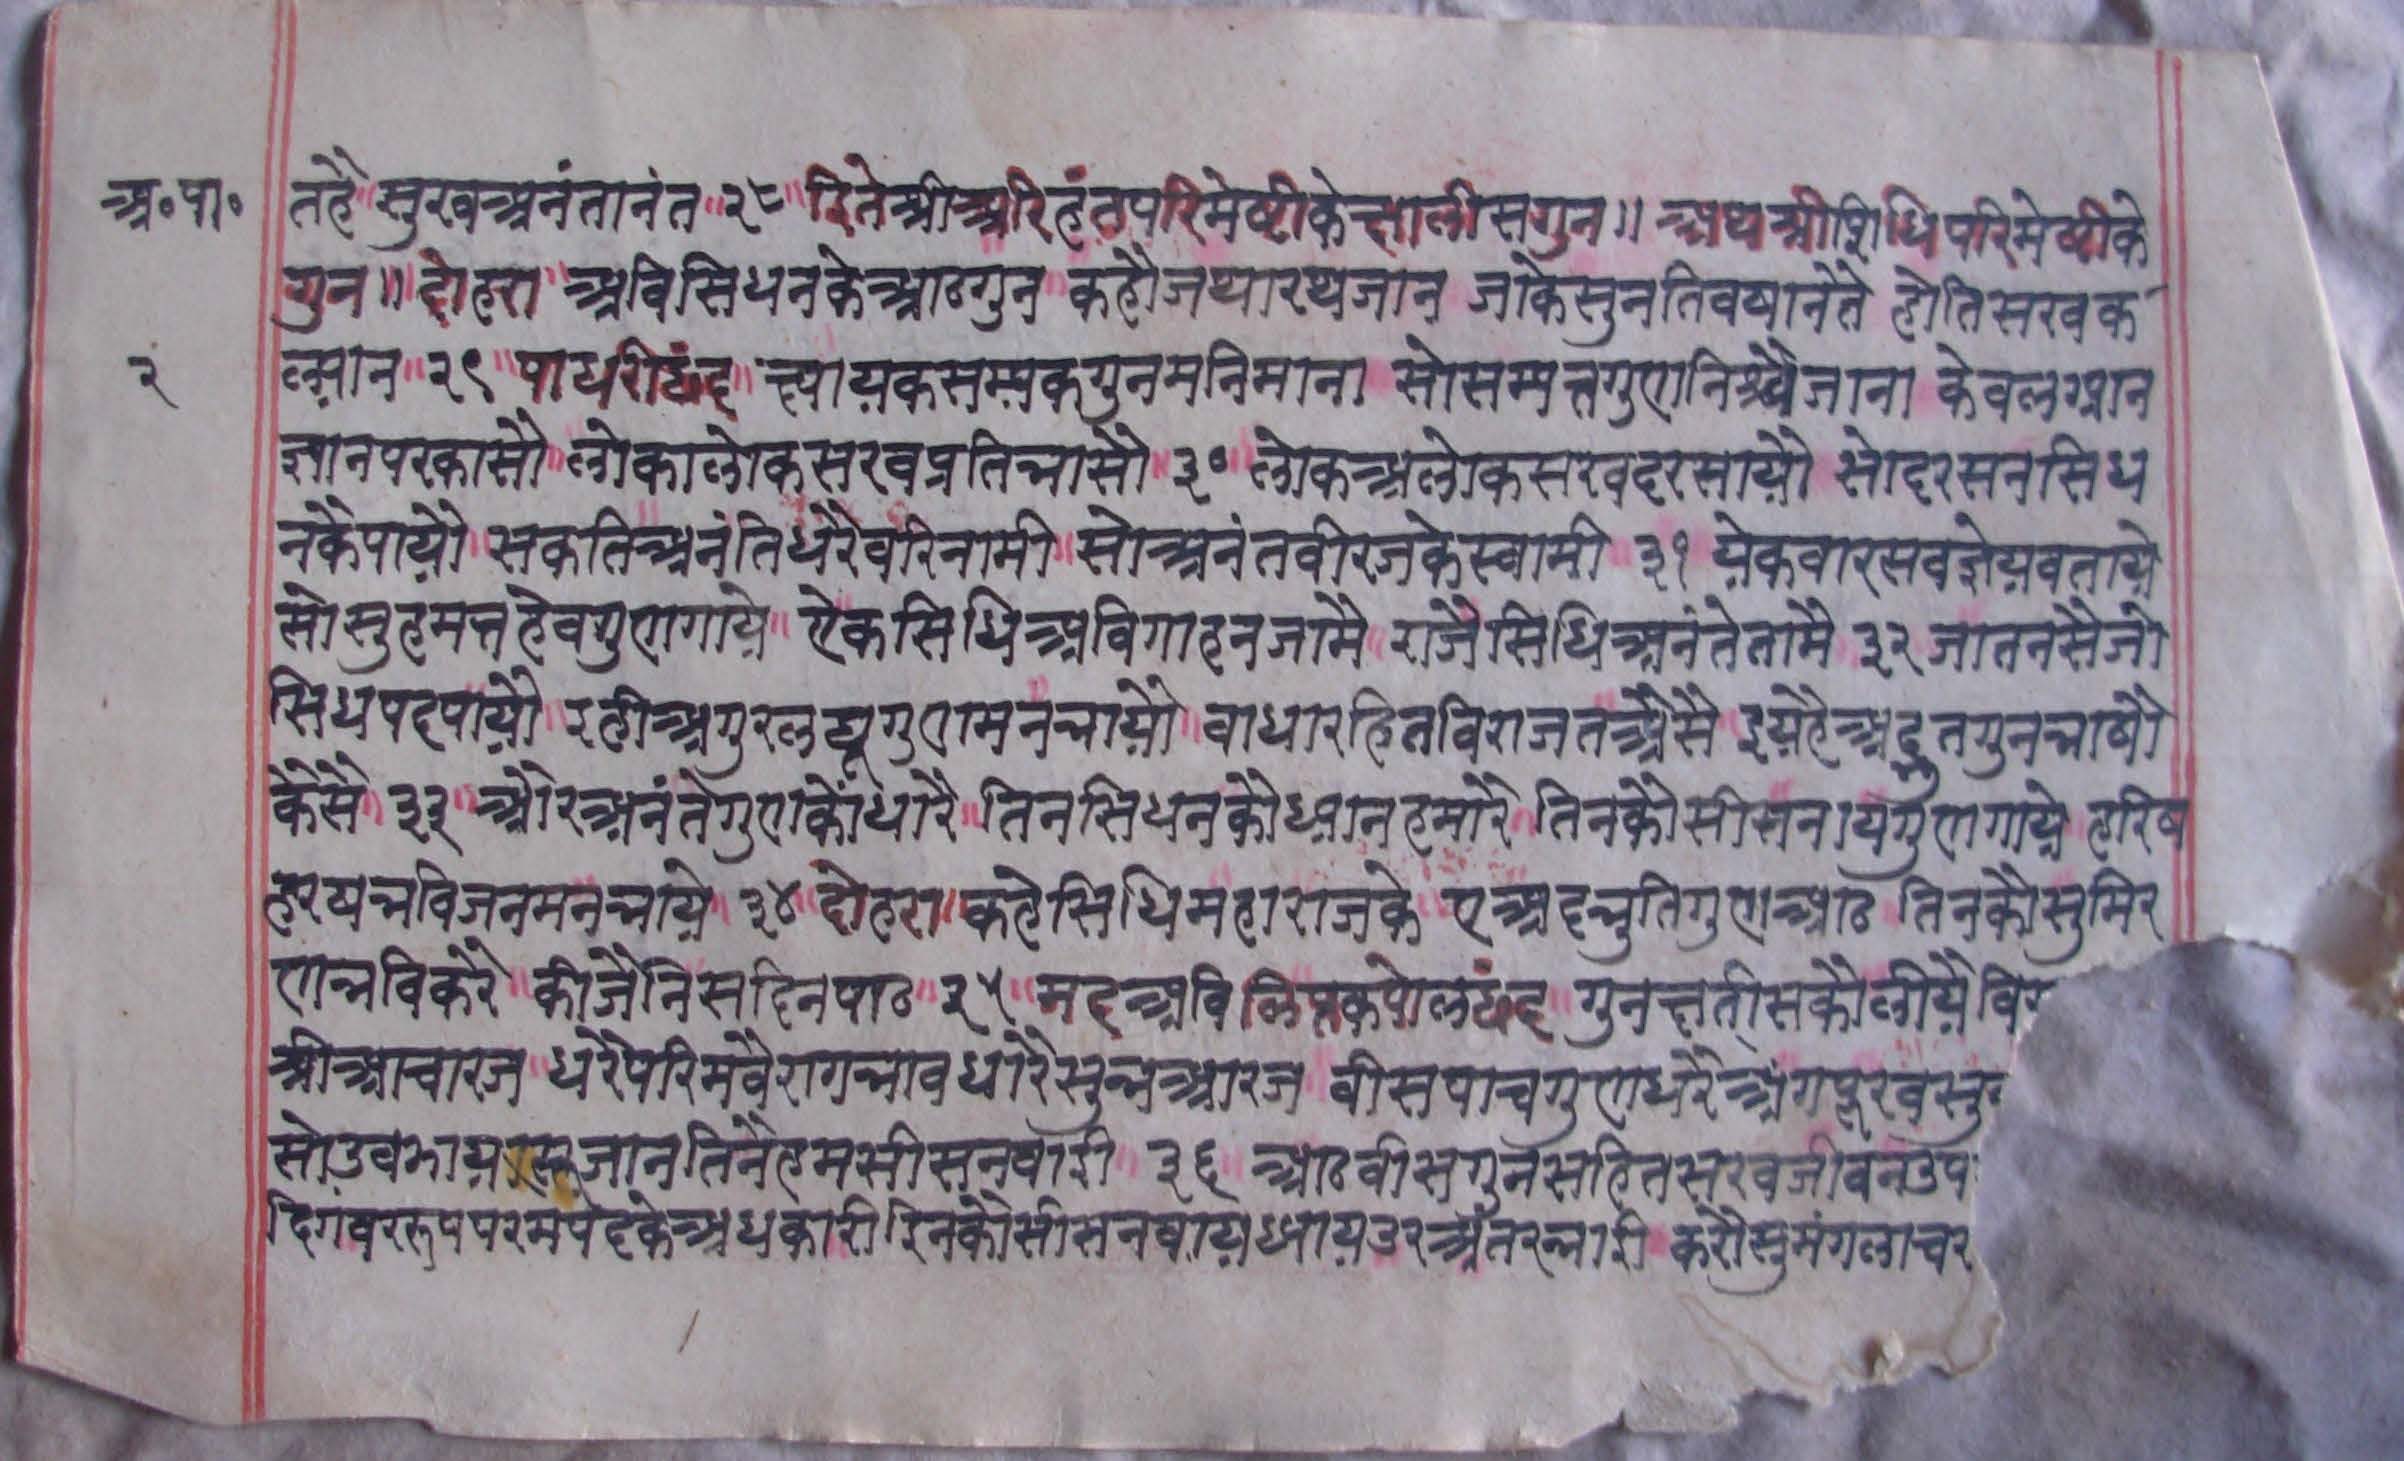 अ॰पा॰ तहै॥सुखअनंतानंत॥२८॥इितेश्रीअरिहंतपरिमेष्टीकेछालीसगुन॥ अथश्रीशिधिपरिमेष्टीके
गुन॥दोहरा॥अविसिधनकेआठगुन॥कहौजथारथजान॥जाकेसुनतिवषानेतै॥होतिसरवक
२ ल्यान॥२९॥पाधरीछंद॥ष्यायकसम्यकगुनमनिमाना॥सोसम्यत्तगुणनिश्चैजाना॥केवलग्यान
ज्ञानपरकासौ॥लोकालोकसरवप्रतिभासौ॥३०॥लोकअलोकसरवदरसायौ॥सोदरसनसिध
नकैपायौ॥सकतिअनंतिधरैवरिनामी॥सोअनंतवीरजकेस्वामी॥३१॥येकवारसवज्ञेयवताये
सोसुहमत्तहेवगुणगाये॥ऐकसिधिअविगाहनजामै॥राजैसिधिअनंतेतामै॥३२॥जातनसैजो
सिधपदपायौ॥रहीअगुरलघूगुणमनभायौ॥वाधारहितविराजतअैसै॥इयहैअद्भुतगुनभाषौ
कैसै॥३३॥औरअनंतेगुणकोंधारै॥तिनसिधनकौध्यानहमारै॥तिनकौसीसनायगुणगाये॥हरिष
हरयभविजनमनभाये॥३४॥दोहरा॥कहेसिधिमहाराजके॥एअदभुतिगुणआठ॥तिनकौसुमिर
णभविकरे॥कीजैनिसदिनपाठ॥३५॥मदअविलिप्तकपोलछंद॥गुनछत्तीसकौलीयै
श्रीआचारज॥धरैपरिमवैरागभावधारैसुभआरज॥वीसपाचगुणधरैअंगपूरव
सोउवझाय॥सूजानतिनैहमसीसनवाई॥३६॥आठवीसगुनसहितसरवजीवनउप
दिगंवररूपपरमपदकेअधकारीइिनकौसीसनवायध्यायउरअंतरभाई॥करौसुमंगलाचर